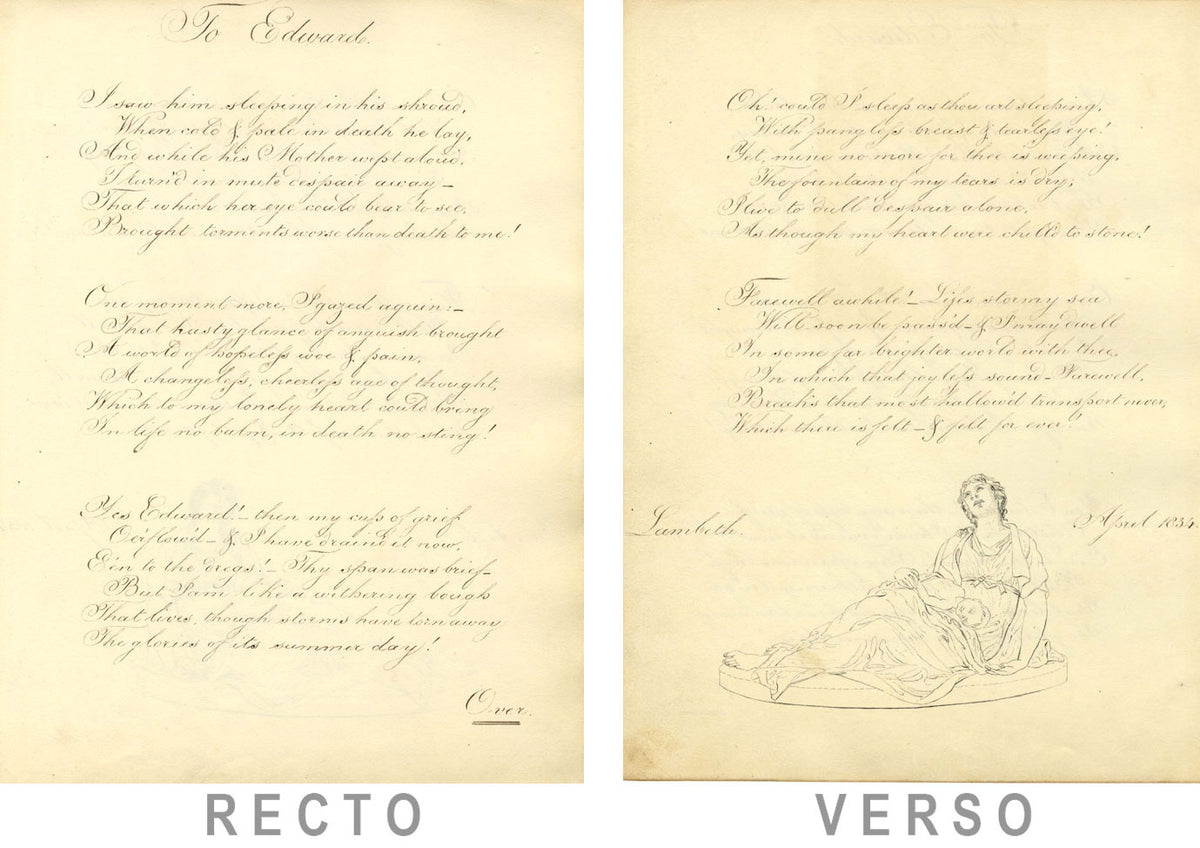 To Edward.
I saw him sleeping in his shroud,
When cold & pale in death he lay,
And while his Mother wept aloud,
I turn'd in mute despair away –
That which her eye could bear to see,
Brought torments worse than death to me!
One moment more, I gazed again:–
That hasty glance of anguish brought
A world of hopeless woe & pain,
A changeless, cheerless age of thought,
Which to my lonely heart could bring
In life no balm, in death no sting!
Yes Edward! – then my cup of grief
O'erflow'd – & I have drain'd it now,
E'en to the dregs! – Thy span was brief –
But I am like a withering bough
That lives, though storms have torn away
The glories of its summer day!
Over.
Oh! could I sleep as thou art sleeping,
With pangless breast & tearless eye!
Yet, mine no more for thee is weeping,
The fountain of my tears is dry;
I live to dull despair alone,
As though my heart were chill'd to stone!
Farewell awhile! – Lifes stormy sea
Will soon be pass'd – & I may dwell
In some far brighter world with thee,
In which that joyless sound – Farewell,
Breaks that most hallow'd transport never,
Which there is felt – & felt for ever!
Lambeth.
April 1834.
RECTO
VERSO